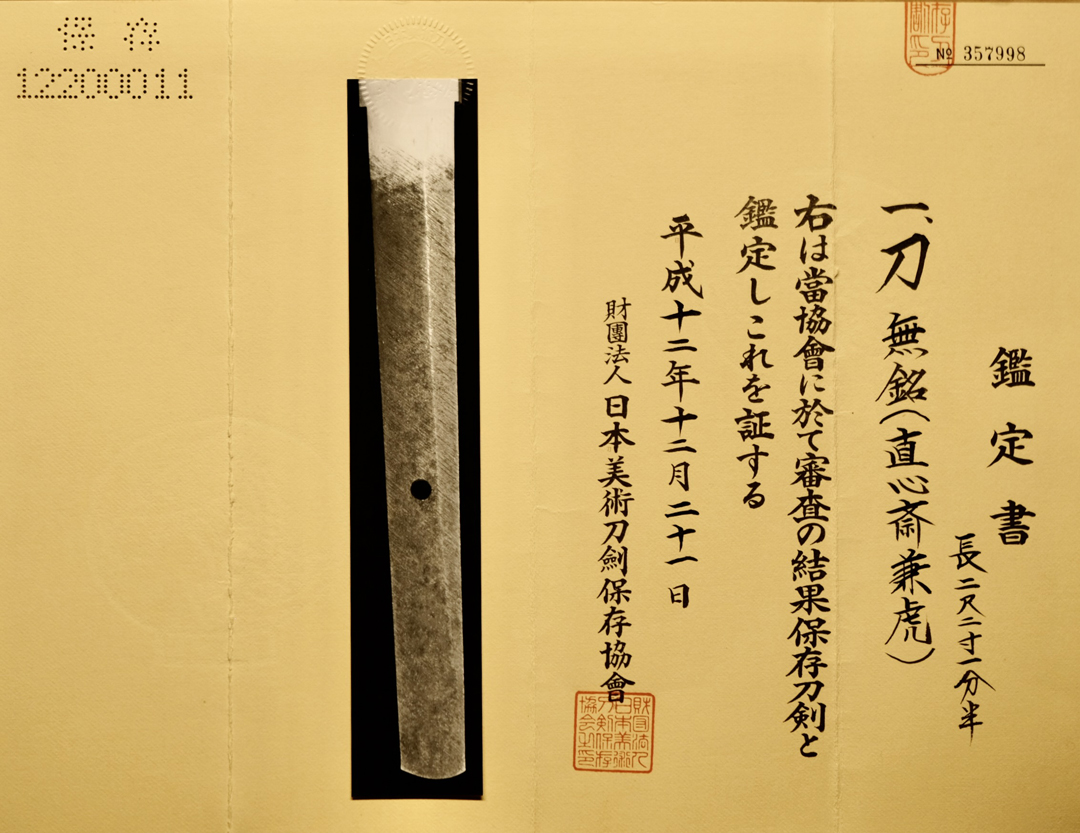 保存
12200011
№ 357998
鑑定書
長二尺二寸一分半
一、刀 無銘(直心斎兼虎)
右は當協會に於て審査の結果保存刀剣と
鑑定しこれを証する
平成十二年十二月二十一日
財團法人 日本美術刀劍保存協會
財団法人
日本美術
刀剣保存
協会之印